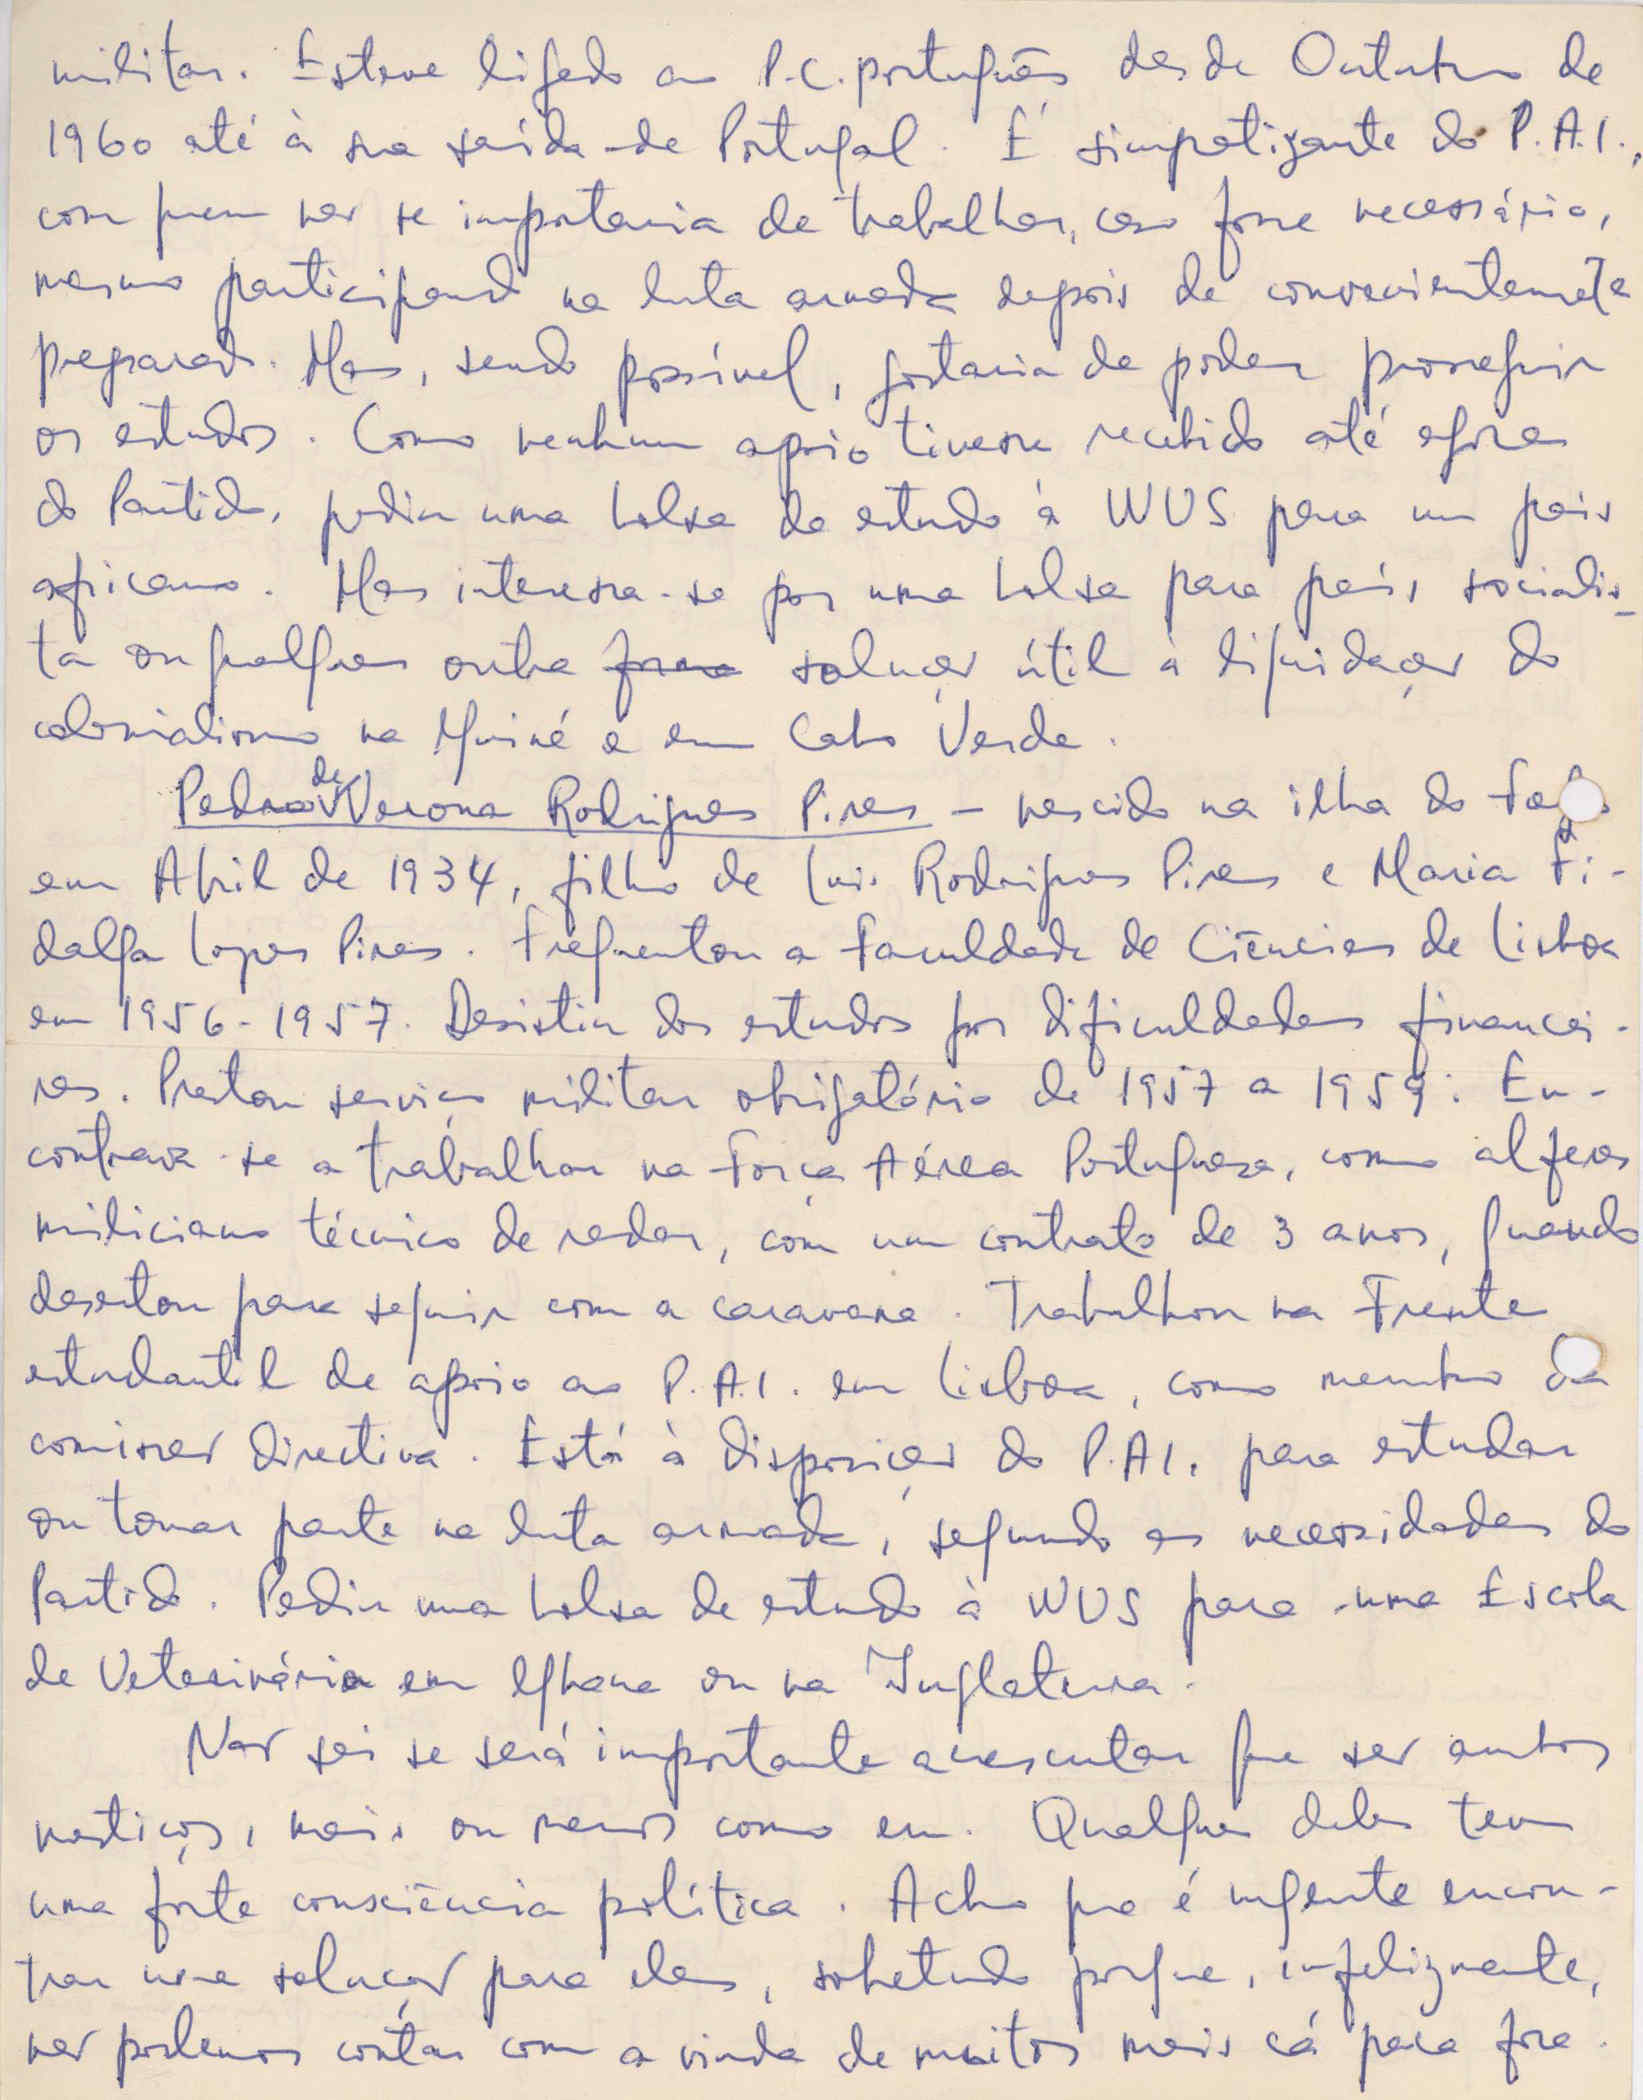 militar. Esteve ligado ao P.C. português desde Outubro de
1960 até à sua saída de Portugal. É simpatizante do P.A.I.,
com quem não se importaria de trabalhar, caso fosse necessário,
mesmo participando na luta armada depois de convenientemente
preparado. Mas, sendo possível, gostaria de poder prosseguir
os estudos. Como nenhum apoio tivesse recebido até agora
do Partido, pediu uma bolsa de estudo à WUS para um país
africano. Mas interessa-se por uma bolsa para país socialis-
ta ou qualquer outra solução útil à liquidação do
colonialismo na Guiné e em Cabo Verde.
Pedro de Verona Rodrigues Pires — nascido na ilha do Fogo
em Abril de 1934, filho de Luís Rodrigues Pires e Maria Fi-
dalga Lopes Pires. Frequentou a Faculdade de Ciências de Lisboa
em 1956-1957. Desistiu dos estudos por dificuldades financei-
ras. Prestou serviço militar obrigatório de 1957 a 1959. En-
contrava-se a trabalhar na Força Aérea Portuguesa, como alferes
miliciano técnico de radar, com um contrato de 3 anos, quando
desertou para seguir com a caravana. Trabalhou na Frente
estudantil de apoio ao P.A.I. em Lisboa, como membro da
comissão directiva. Está à disposição do P.A.I. para estudar
ou tomar parte na luta armada, segundo as necessidades do
Partido. Pediu uma bolsa de estudo à WUS para uma Escola
de Veterinária em Ghana ou na Inglaterra.
Não sei se será importante acrescentar que são ambos
mestiços, mais ou menos como eu. Qualquer deles tem
uma forte consciência política. Acho que é urgente encon-
trar uma solução para eles, sobretudo porque, infelizmente,
não podemos contar com a vinda de muitos mais cá para fora.